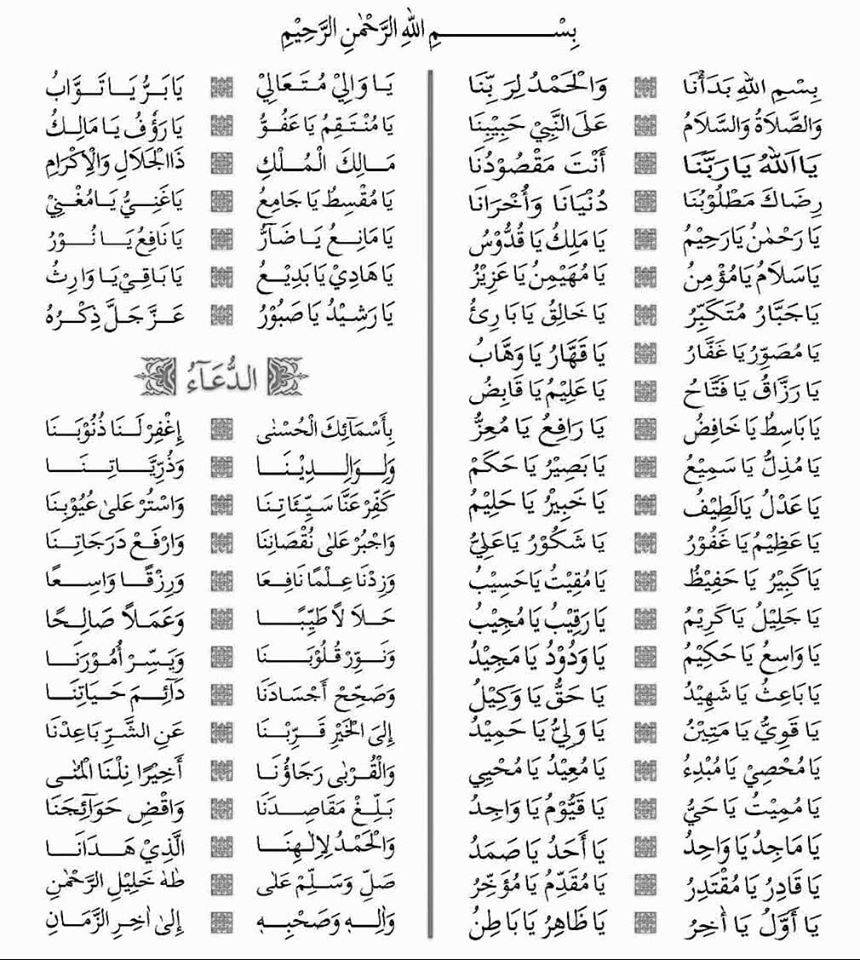 بِسْمِ اللهِ الرَّحْمٰنِ الرَّحِيْمِ
بِسْمِ اللهِ بَدَأْنَا وَالْحَمْدُ لِرَبِّنَا
وَالصَّلَاةُ وَالسَّلَامُ عَلَى النَّبِيْ حَبِيْبِنَا
يَا اَللهُ يَا رَبَّنَا أَنْتَ مَقْصُوْدُنَا
رِضَاكَ مَطْلُوْبُنَا دُنْيَانَا وَأُخْرَانَا
يَا رَحْمٰنُ يَارَحِيْمُ يَا مَلِكُ يَا قُدُّوْسُ
يَاسَلَامُ يَامُؤْمِنُ يَا مُهَيْمِنُ يَا عَزِيْزُ
يَاجَبَّارُ مُتَكَبِّرُ يَا خَالِقُ يَا بَارِئُ
يَا مُصَوِّرُ يَا غَفَّارُ يَا قَهَّارُ يَا وَهَّابُ
يَا رَزَّاقُ يَا فَتَّاحُ يَا عَلِيْمُ يَا قَابِضُ
يَا بَاسِطُ يَا خَافِضُ يَا رَافِعُ يَا مُعِزُّ
يَا مُذِلُّ يَا سَمِيْعُ يَا بَصِيْرُ يَا حَكَمْ
يَا عَدْلُ يَالَطِيْفُ يَا خَبِيْرُ يَا حَلِيْمُ
يَا عَظِيْمُ يَا غَفُوْرُ يَا شَكُوْرُ يَاعَلِيُّ
يَا كَبِيْرُ يَا حَفِيْظُ يَا مُقِيْتُ يَاحَسِيْبُ
يَا جَلِيْلُ يَاكَرِيْمُ يَا رَقِيْبُ يَا مُجِيْبُ
يَا وَاسِعُ يَا حَكِيْمُ يَا وَدُوْدُ يَا مَجِيْدُ
يَا بَاعِثُ يَا شَهِيْدُ يَا حَقُّ يَا وَكِيْلُ
يَا قَوِيُّ يَا مَتِيْنُ يَا وَلِيُّ يَا حَمِيْدُ
يَا مُحْصِيْ يَا مُبْدِءُ يَا مُعِيْدُ يَا مُحْيِي
يَا مُمِيْتُ يَا حَيُّ يَا قَيُّوْمُ يَا وَاجِدُ
يَا مَاجِدُ يَا وَاحِدُ يَا أَحَدُ يَا صَمَدُ
يَا قَادِرُ يَا مُقْتَدِرُ يَا مُقَدِّمُ يَا مُؤَخِّرُ
يَا أَوَّلُ يَا أٰخِرُ يَا ظَاهِرُ يَا بَاطِنُ
يَا وَالِيْ مُتَعَالِيْ يَا بَرُّ يَا تَوَّابُ
يَا مُنْتَقِمُ يَا عَفُوُّ يَا رَؤُفُ يَا مَالِكُ
مَالِكَ الْمُلْكِ ذَا الْجَلَالِ وَالْإِكْرَامِ
يَا مُقْسِطُ يَا جَامِعُ يَا غَنِيُّ يَا مُغْنِيْ
يَا مَانِعُ يَا ضَآرُّ يَا نَافِعُ يَا نُوْرُ
يَا هَادِيْ يَا بَدِيْعُ يَا بَاقِيْ يَا وَارِثُ
يَا رَشِيْدُ يَا صَبُوْرُ عَزَّ جَلَّ ذِكْرُهُ
الدُّعَآءُ
بِأَسْمَآئِكَ الْحُسْنٰى إِغْفِرْ لَنَا ذُنُوْبَنَا
وَلِوَالِدِيْنَا وَذُرِّيَّاتِنَا
كَفِّرْ عَنَّا سَيِّئَاتِنَا وَاسْتُرْ عَلٰى عُيُوْبِنَا
وَاجْبُرْ عَلٰى نُقْصَانِنَا وَارْفَعْ دَرَجَاتِنَا
وَزِدْنَا عِلْمًا نَافِعَا وَرِزْقًا وَاسِعًا
حَلَالًا طَيِّبًا وَعَمَلًا صَالِحًا
وَنَوِّرْ قُلُوْبَنَا وَيَسِّرْ أُمُوْرَنَا
وَصَحِّحْ أَجْسَادَنَا دَآئِمَ حَيَاتِنَا
إِلَى الْخَيْرِ قَرِّبْنَا عَنِ الشَّرِّ بَاعِدْنَا
وَالْقُرْبٰى رَجَاؤُنَا أَخِيْرًا نِلْنَا الْمُنٰى
بَلِّغْ مَقَاصِدَنَا وَاقْضِ حَوَآئِجَنَا
وَالْحَمْدُ لِإِلٰهِنَا الَّذِيْ هَدَانَا
صَلِّ وَسَلِّمْ عَلٰى طٰهٰ خَلِيْلِ الرَّحْمٰنِ
وَاٰلِهِ وَصَحْبِهِ إِلٰى اٰخِرِ الزَّمَانِ